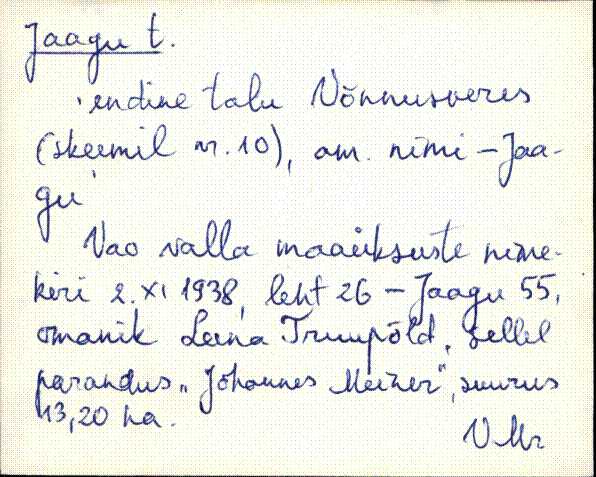 Jaagu t.
endine talu Võnnusveres
(skeemil nr. 10), am. nimi – Jaa-
gu
Vao valla maaüksuste nime-
kiri 2. XI 1938, leht 26 – Jaagu 55,
omanik Leena Truupõld, sellel
parandus „Johannes Meiner", suurus
13,20 ha.
V Mr